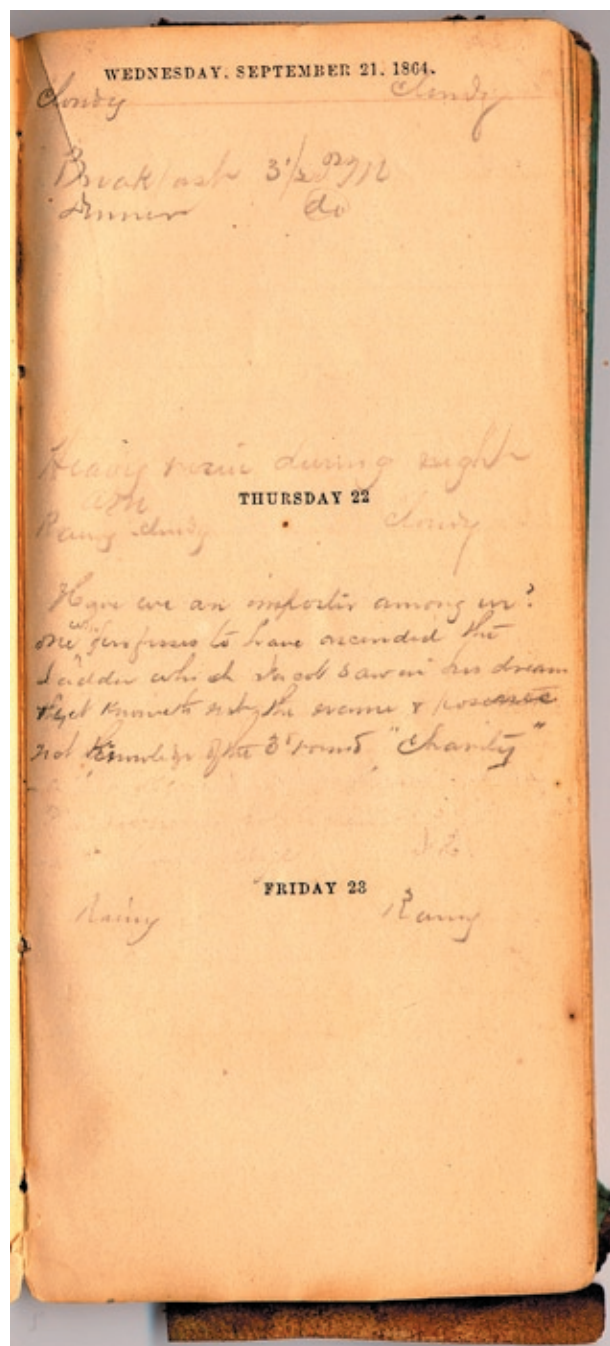 WEDNESDAY, SEPTEMBER 21, 1864.
Cloudy Cloudy
Breakfast 3½ P M
Dinner do
Heavy rain during night
THURSDAY 22
Rainy cloudy Cloudy
Have we an imposter among us?
one who professes to have ascended the
Ladder which Jacob saw in his dream
& yet knoweth not the &
not knowledge of the 3d round "Charity"
FRIDAY 23
Rainy Rainy